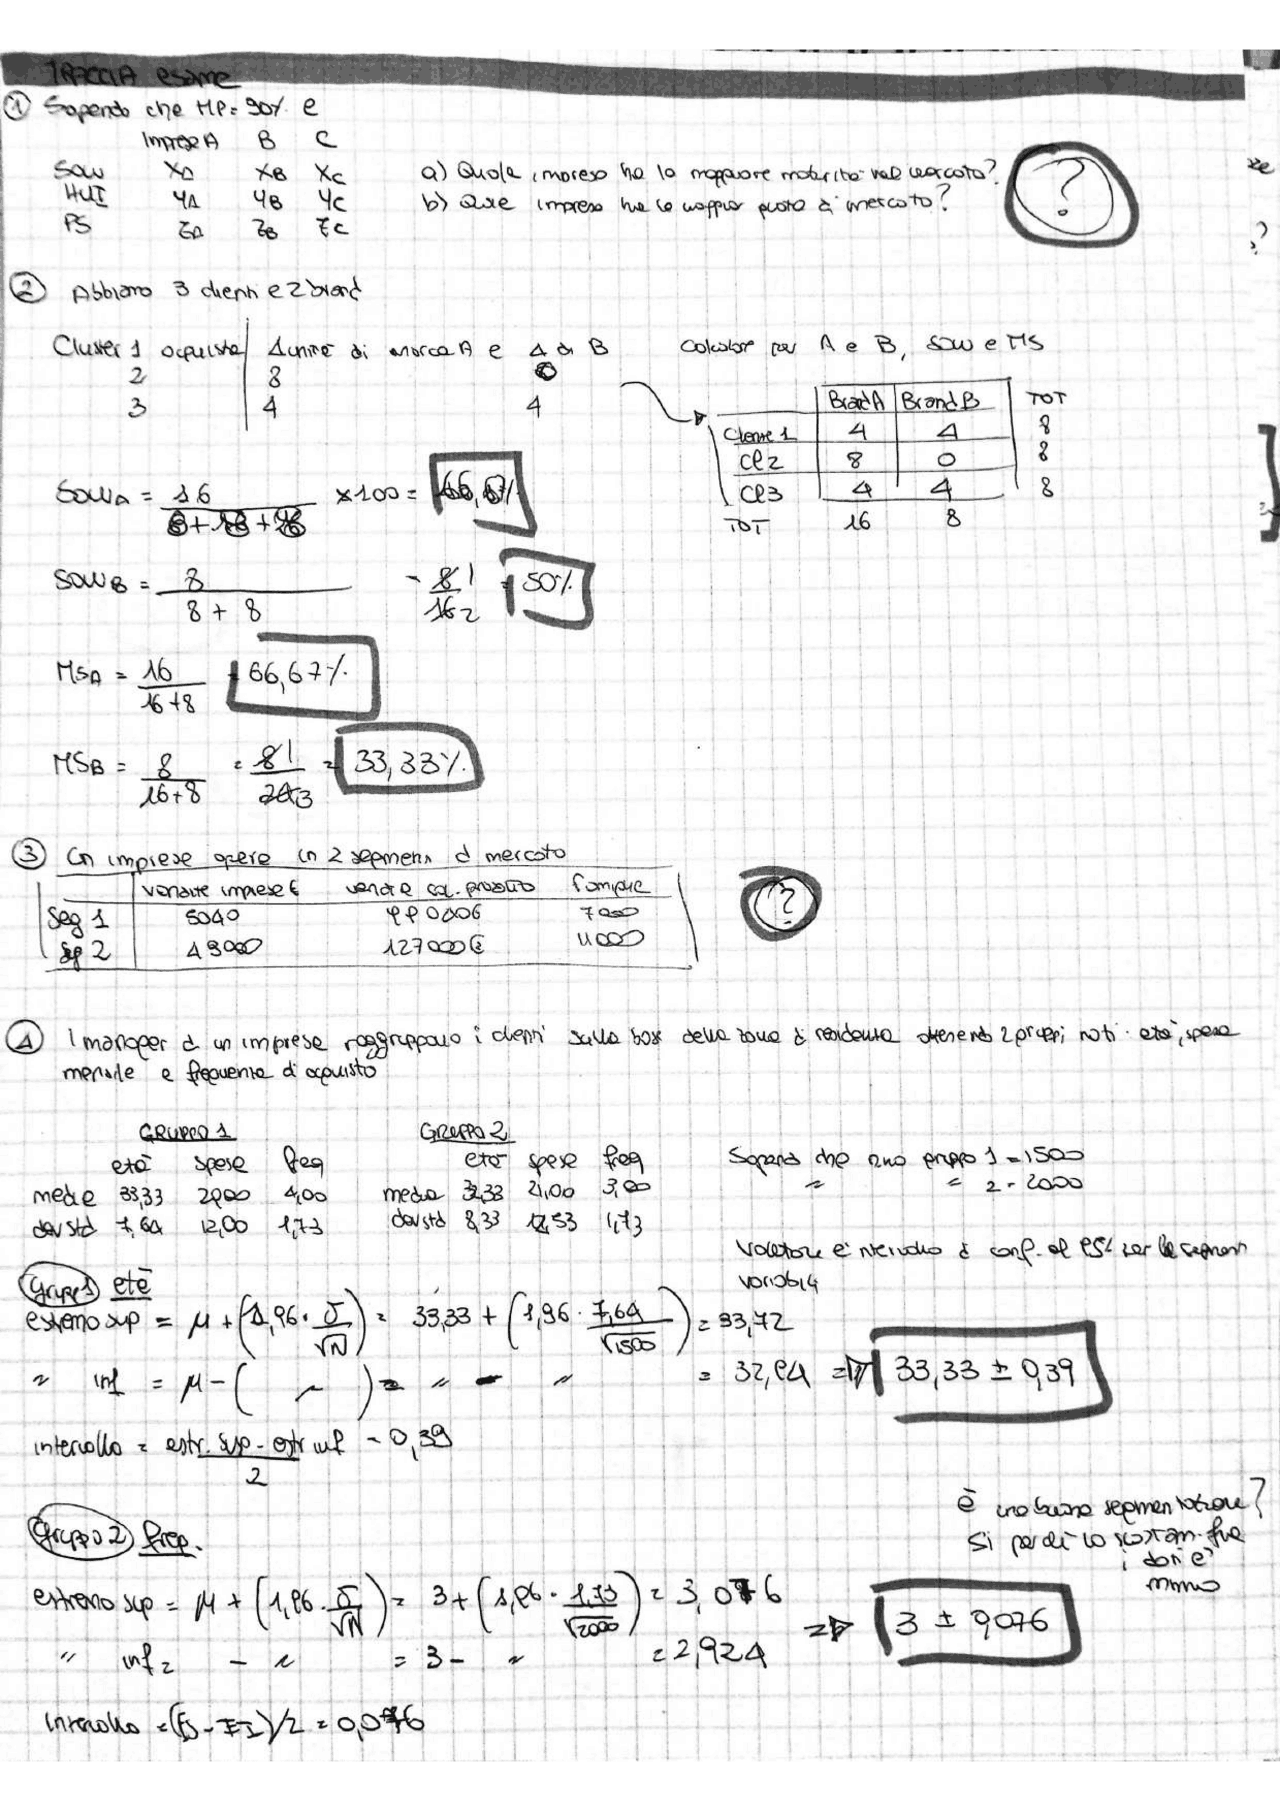 TRACCIA esame
① Sapendo che MP= 90% e
Impresa A B C
SOW XA XB XC
HUI YA YB YC
PS ZA ZB ZC
a) Quale impresa ha la maggiore maturità nel mercato?
b) Quale impresa ha la maggior quota di mercato?
?
② Abbiamo 3 clienti e 2 brand
Cluster 1 acquista 4 unità di marca A e 4 di B
2 8 0
3 4 4
Calcolare per A e B, SOW e MS
Brand A Brand B TOT
Cliente 1 4 4 8
Cl2 8 0 8
Cl3 4 4 8
TOT 16 8
SOWA = 16 / 8+8+8 ×100 = 66,67%
SOWB = 8 / 8+8 = 8/16 1/2 = 50%
MSA = 16 / 16+8 = 66,67%
MSB = 8 / 16+8 = 8/24 1/3 = 33,33%
③ Un impresa opera in 2 segmenti di mercato
vendite impresa € vendite cat. prodotto famiglie
Seg 1 5040 7000
Seg 2 49000 127000€ 11000
?
④ I manager di un impresa raggruppano i clienti sulla base della zona di residenza ottenendo 2 gruppi, noti età, spesa
mensile e frequenza di acquisto
GRUPPO 1 GRUPPO 2
età spesa freq età spesa freq
media 33,33 20,00 4,00 media 32,33 21,00 3,00
dev std 7,64 12,00 1,73 dev std 8,33 12,53 1,73
Sapendo che gruppo 1 = 1500
" " 2 = 2000
Valutare l'intervallo di conf. al 95% per le seguenti
variabili
Gruppo 1 età
estremo sup = μ + (1,96 · σ/√N) = 33,33 + (1,96 · 7,64/√1500) = 33,72
" inf = μ - ( " ) = " - " = 32,94 => 33,33 ± 0,39
intervallo = estr. sup - estr inf / 2 = 0,39
è una buona segmentazione?
Si perché lo scostam. fra
i dati è
minimo
Gruppo 2 freq.
estremo sup = μ + (1,96 · σ/√N) = 3 + (1,96 · 1,73/√2000) = 3,076
" inf = - " = 3 - " = 2,924 => 3 ± 0,076
intervallo = (ES - EI)/2 = 0,076